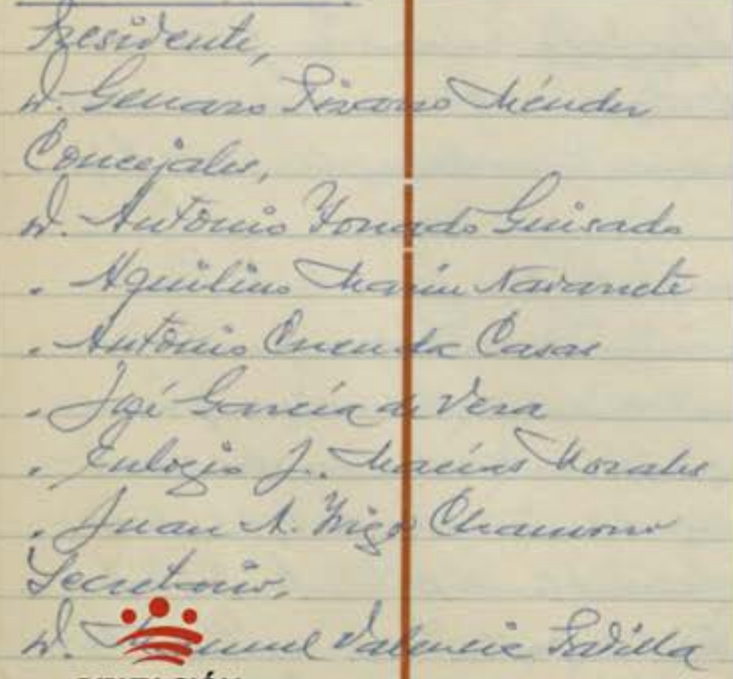 Presidente,
D. Genaro Pizarro Méndez
Concejales,
D. Antonio Tornado Guisado
. Aquilino Marín Navarrete
. Antonio Cuenda Casas
. José García de Vera
. Eulogio J. Macías Morales
. Juan A. Trigo Chamorro
Secretario,
D. Manuel Valencia Padilla
DIPUTACIÓN